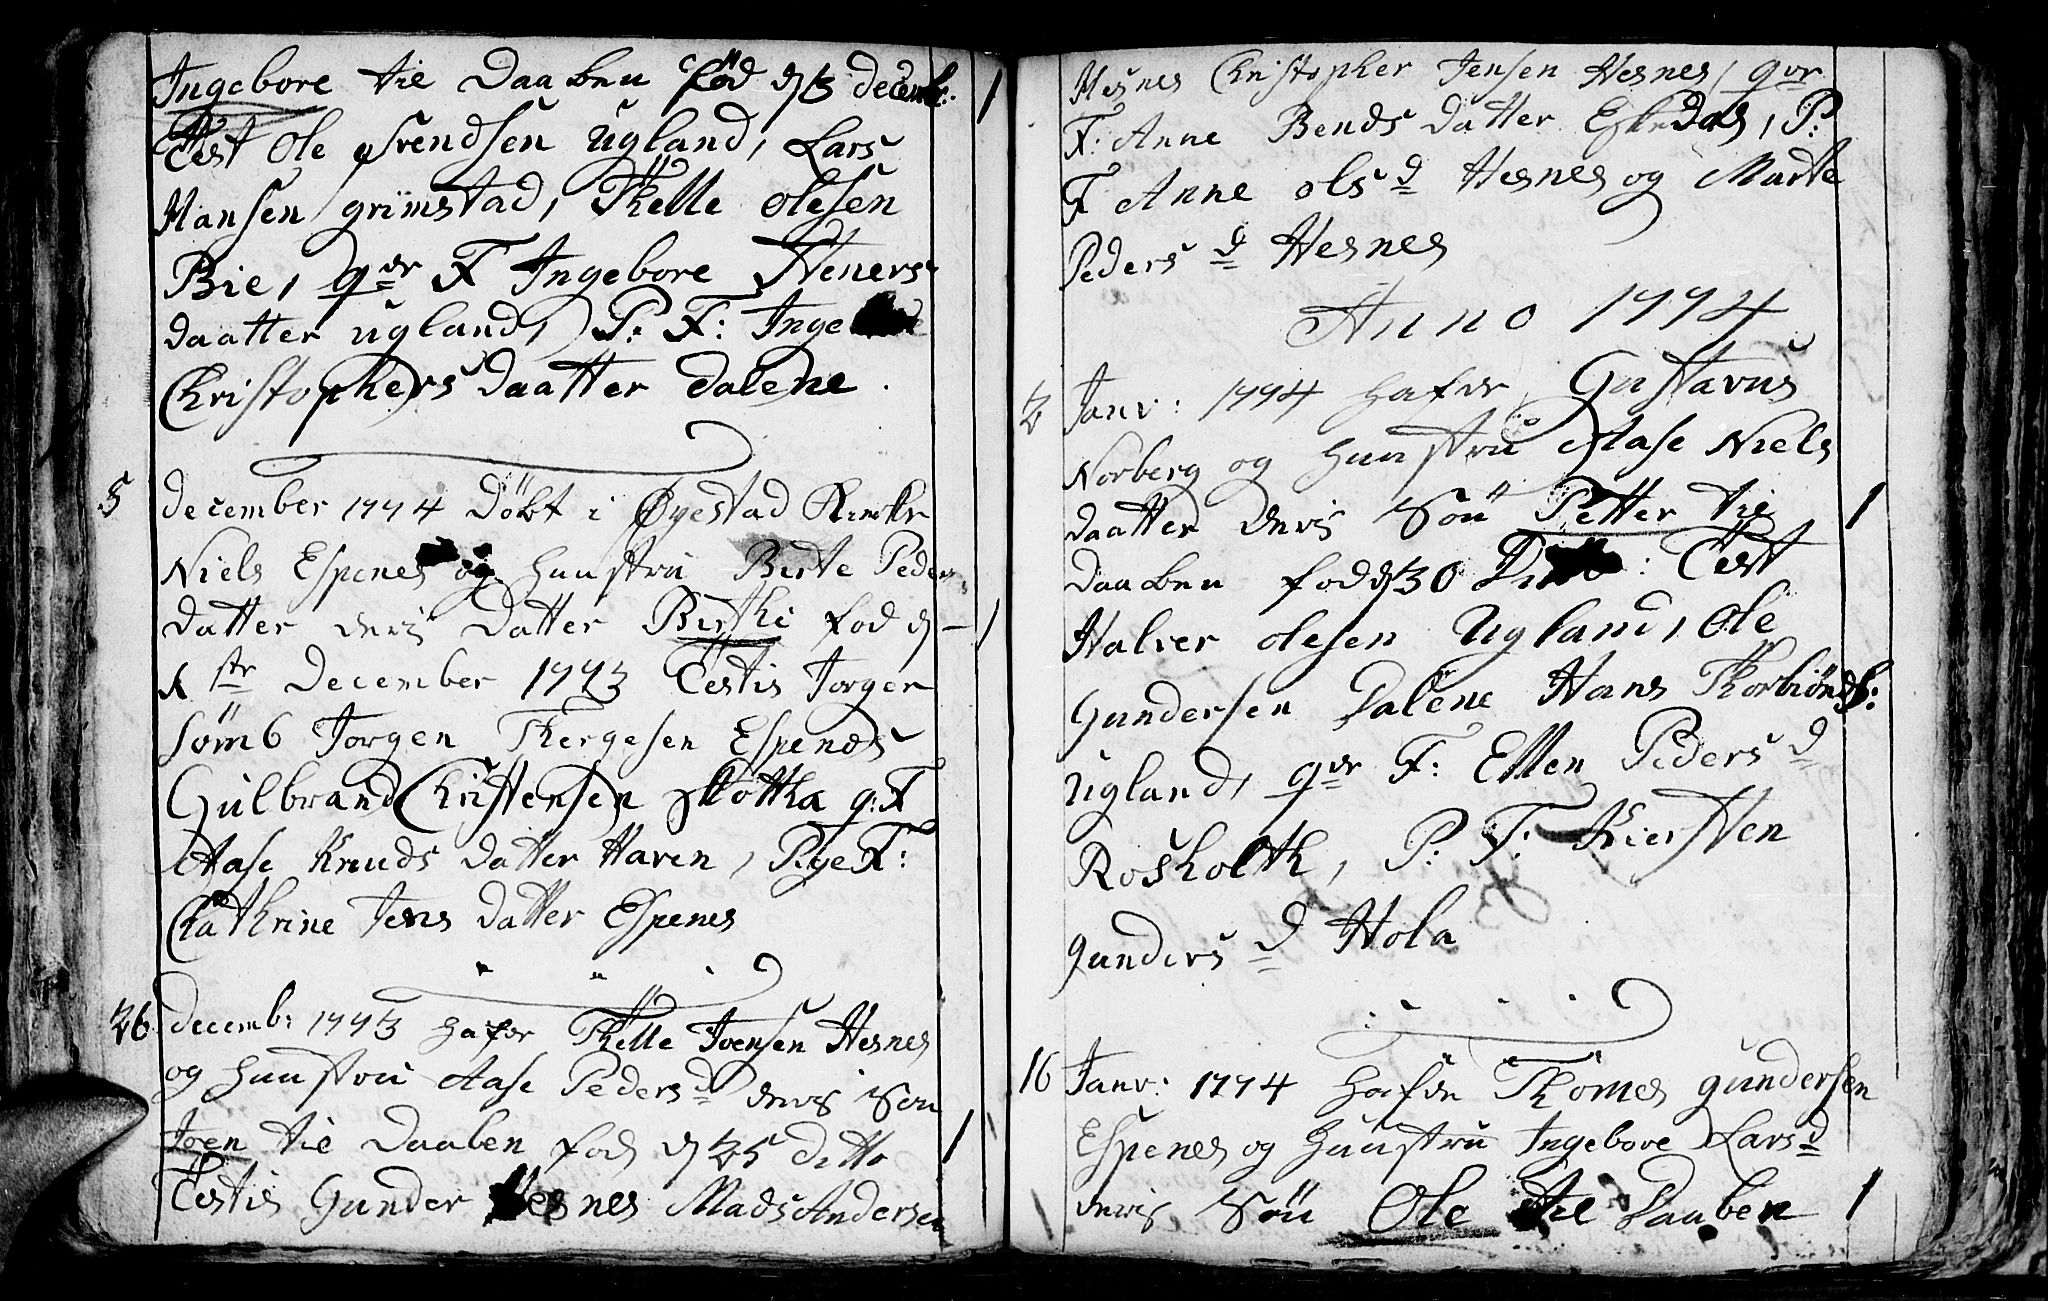 Ingebore tie Daaben föd d 3 decembr: 1
Test Ole Svendsen Ugland, Lars
Hansen grimstad, Tkelle Olesen
Bie, qvr F Ingebore Steners
daatter ugland, P: F: Inge
Christophers daatter dalene.
5 december 1774 Döbt i Øyestad Kircke
Niels Espenes og Hustru Birte Peders
datter deris datter Birthe fod d - 1
1 ste December 1773 Testis Jorgen
sömb Jorgen Tkergesen Espenes
Gulbrand Christensen Skottka q: F
Aase Knuds datter Haven, Pige F:
Cathrine Jens datter Espenes
26 decemb: 1773 hafer Tkelle Joensen Hesnes
og Huustru Aase Peders d deris Son
Joen tie Daaben fod d 25 ditto 1
Testis Gunder Hesnes Mads Andersen
Hesnes Christopher Jensen Hesnes, qvr
F: Anne Bends datter Eskedal, P:
F Anne ols d Hesnes og Marte
Peders d Hesnes
Anno 1774
2 Janv: 1774 hafer Gustavus
Norberg og Huustru Aase Niels
daatter deris Sön Petter tie 1
Daaben fod d 30 : Test
Halver olesen Ugland, Ole
Gundersen Dalene Hans Tkorbiönds:
Ugland, qvr F: Ellen Peders d
Roskolth, P: F: Kiersten
gunders d Hola
16 Janv: 1774 hafer Tkomes gundersen
Espenes og Huustru Ingebore Lars d
deris Sön Ole tie Daaben 1